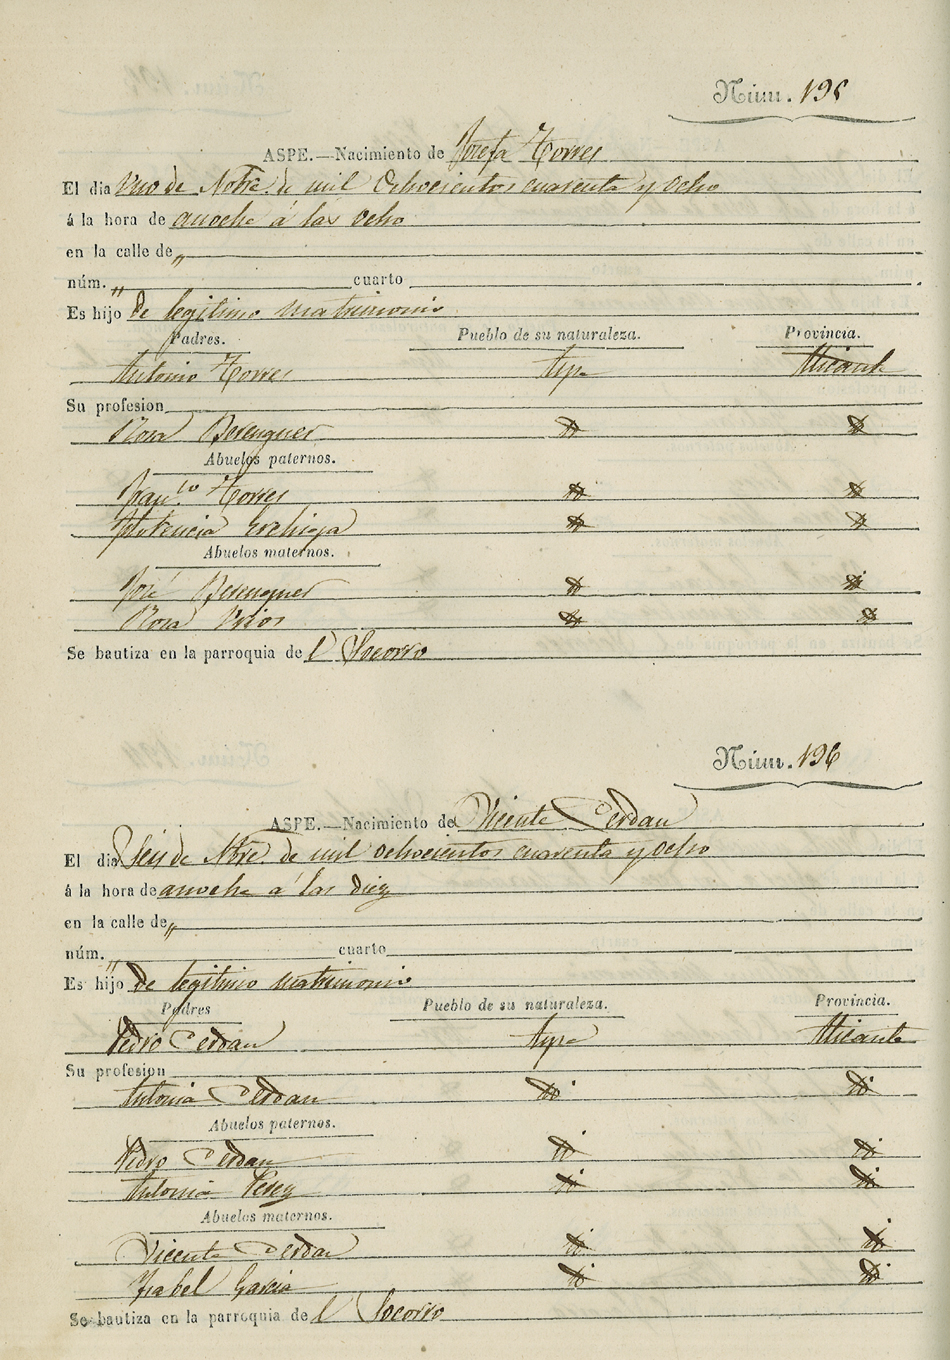 Núm. 195
ASPE.—Nacimiento de Josefa Torres
El dia Uno de Nobre. de mil Ochocientos cuarenta y ocho
á la hora de anoche á las ocho
en la calle de „
núm. „ cuarto
Es hijo de legitimo matrimonio
Padres. Pueblo de su naturaleza. Provincia.
Antonio Torres Aspe Alicante
Su profesion
Rosa Berenguer id id
Abuelos paternos.
Franco. Torres id id
Florencia id id
Abuelos maternos.
José Berenguer id id
Rosa id id
Se bautiza en la parroquia de l Socorro
Núm. 196
ASPE.—Nacimiento de Vicente Cerdan
El dia Seis de Nbre de mil ochocientos cuarenta y ocho
á la hora de anoche á las diez
en la calle de „
núm. „ cuarto
Es hijo de legitimo matrimonio
Padres Pueblo de su naturaleza. Provincia.
Pedro Cerdan Aspe Alicante
Su profesion
Antonia Cerdan id id
Abuelos paternos.
Pedro Cerdan id id
Antonia Perez id id
Abuelos maternos.
Vicente Cerdan id id
Ysabel Garcia id id
Se bautiza en la parroquia de l Socorro